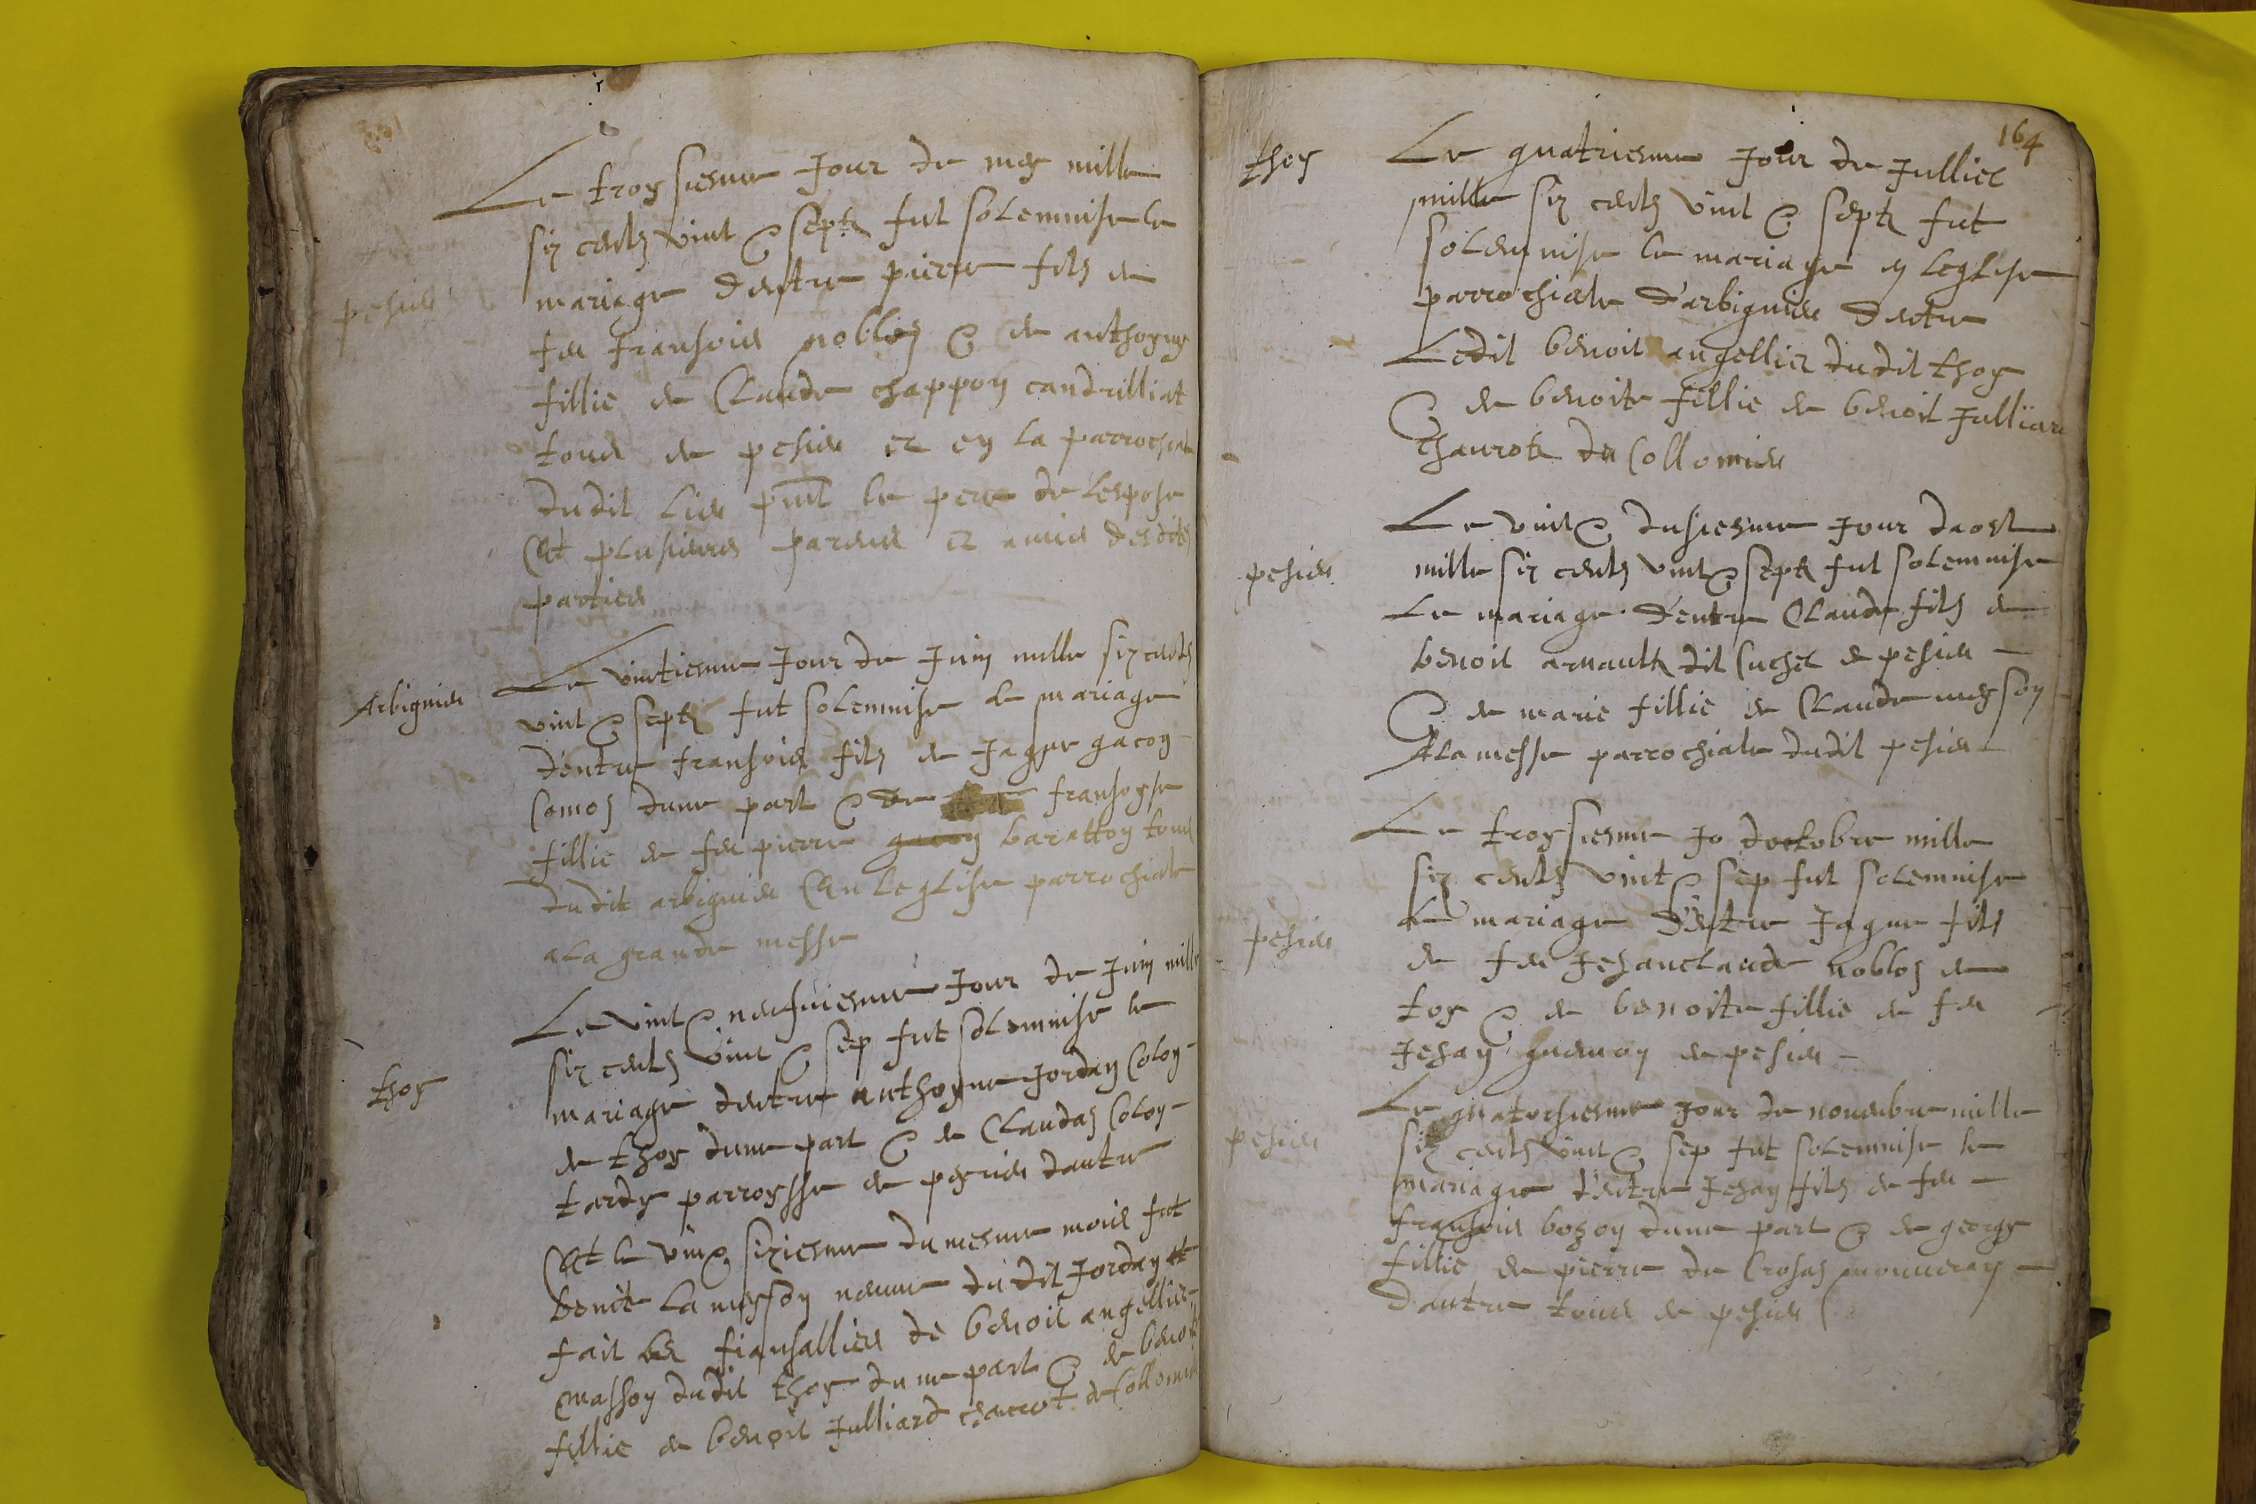 Le troysiesme Jour de mey mille
six centz vint & septz fut solemnise le
pesieu
mariage dentre pierre filz de
feu fransois nobloz & de anthoyne
fillie de Claude chappon candrilliat
tous de pesieu et en la parrochiale
dudit lieu pnt le pere de lespose
Et plusieurs parens et amis desdites
parties
Arbignieu
Le vintiesme Jour de Juin mille six centz
vint & septz fut solemnise le mariage
dentre fransois filz de Jaque gacon
Comoz dune part & de fransoyse
fillie de feu pierre gacon baratton tous
dudit arbignieu En leglise parrochiale
a la grande messe
Le vint & neufviesme Jour de Juin mille
six centz vint & sep fut solemnise le
thoy
mariage dentre anthoyne Jordan Colon
de thoy dune part & de Claudaz Coloy
tardy parroysse de peyrieu dautre
Et le vint & siziesme du mesme mois fut
benite la meyson neuve du dit Jordan et
fait les fiansallies de benoit angellier
masson dudit thoy dune part & de benoite
fillie de benoit Julliard chavrot de Collomieu
164
thoy
Le quatriesme Jour de Julliet
mille six centz vint & septz fut
solemnise le mariage en leglise
parrochiale d'arbignieu dentre
Ledit benoit angellier dudit thoy
& de benoite fillie de benoit Julliard
chavrotz de Collomieu
Le vint & dusiesme Jour daost
pesieu
mille six centz vint & septz fut solemnise
Le mariage d'entre Claude filz de
benoit arnaultz dit Cuchet de pesieu
& de marie fillie de Claude meysson
A la messe parrochiale dudit pesieu
Le troysiesme Jo doctobre mille
six centz vint & sep fut solemnise
pesieu
le mariage d'entre Jaque filz
de feu Jehanclaude nobloz de
toy & de benoite fillie de feu
Jehan guemon de pesieu
Le quatorsiesme Jour de novembre mille
pesieu
six centz vint & sep fut solemnise le
mariage d'entre Jehan filz de feu
fransois bozon dune part & de george
fillie de pierre du Crosaz monneray
D'autre tous de pesieu